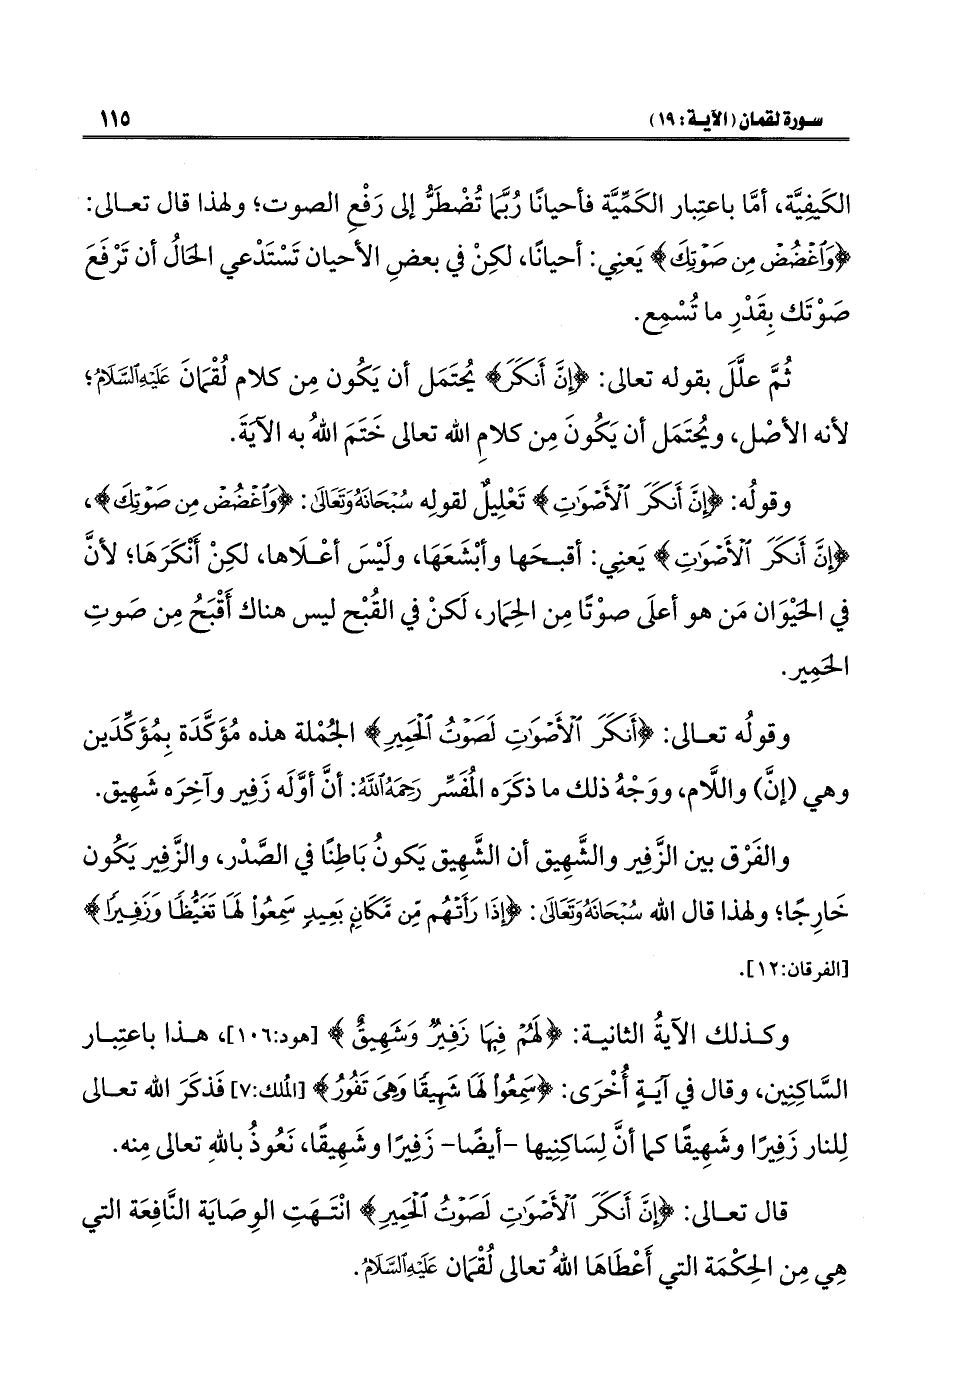 سورة لقمان (الآية: ١٩) ١١٥
الكَيفِيَّة، أمَّا باعتِبار الكَمِّيَّة فأحيانًا رُبَّما تُضْطَرُّ إلى رَفْعِ الصوت؛ ولهذا قال تعالى:
﴿وَٱغْضُضْ مِن صَوْتِكَ﴾ يَعنِي: أحيانًا، لكِنْ في بعضِ الأحيان تَسْتَدْعي الحَالُ أن تَرْفَعَ
صَوْتَك بِقَدْرِ ما تُسْمِع.
ثُمَّ علَّلَ بقوله تعالى: ﴿إِنَّ أَنكَرَ﴾ يُحتَمَل أن يَكُون مِن كلام لُقْمَانَ عَلَيْهِ ٱلسَّلَامُ؛
لأنه الأصْل، ويُحتَمَل أن يَكُونَ مِن كلامِ الله تعالى خَتَمَ اللهُ به الآيَةَ.
وقولُه: ﴿إِنَّ أَنكَرَ ٱلْأَصْوَٰتِ﴾ تَعْلِيلٌ لقولِه سُبْحَانَهُ وَتَعَالَىٰ: ﴿وَٱغْضُضْ مِن صَوْتِكَ﴾،
﴿إِنَّ أَنكَرَ ٱلْأَصْوَٰتِ﴾ يَعنِي: أقبـحَها وأبْشَعَهَا، ولَيْسَ أعْـلَاها، لكِنْ أَنْكَرَهَا؛ لأنَّ
في الحَيْوَان مَن هو أعلَى صوْتًا مِن الحِمَار، لَكنْ في القُبْح ليس هناك أَقْبَحُ مِن صَوتِ
الحَمِير.
وقولُه تعـالى: ﴿أَنكَرَ ٱلْأَصْوَٰتِ لَصَوْتُ ٱلْحَمِيرِ﴾ الجُمْلة هذه مُؤَكَّدَة بِمُؤَكِّدَين
وهي (إنَّ) واللَّام، ووَجْهُ ذلك ما ذكَرَه المُفَسِّر رَحِمَهُ ٱللَّهُ: أنَّ أوَّلَه زَفِير وآخِرَه شَهِيق.
والفَرْق بين الزَّفِير والشَّهِيق أن الشَّهِيق يَكونُ بَاطِنًا في الصَّدْر، والزَّفِير يَكُون
خَارِجًا؛ ولهذا قال الله سُبْحَانَهُ وَتَعَالَىٰ: ﴿إِذَا رَأَتْهُم مِّن مَّكَانٍ بَعِيدٍ سَمِعُوا۟ لَهَا تَغَيُّظًا وَزَفِيرًا﴾
[الفرقان:١٢].
وكـذلك الآيةُ الثانيـة: ﴿لَهُمْ فِيهَا زَفِيرٌ وَشَهِيقٌ﴾ [هود:١٠٦]، هـذا باعتِبـار
السَّاكِنِين، وقال في آيَـةٍ أُخْرَى: ﴿سَمِعُوا۟ لَهَا شَهِيقًا وَهِىَ تَفُورُ﴾ [الملك:٧] فَذكَرَ الله تعـالى
لِلنار زَفِيرًا وشَهِيقًا كما أنَّ لِسَاكِنِيها -أيضًا- زَفِيرًا وشَهِيقًا، نَعُوذُ باللهِ تعالى مِنه.
قال تعـالى: ﴿إِنَّ أَنكَرَ ٱلْأَصْوَٰتِ لَصَوْتُ ٱلْحَمِيرِ﴾ انْتَـهَتِ الوِصَايَة النَّافِعَة التي
هِي مِن الحِكْمَة التي أَعْطَاهَا اللهُ تعالى لُقْمَان عَلَيْهِ ٱلسَّلَامُ.